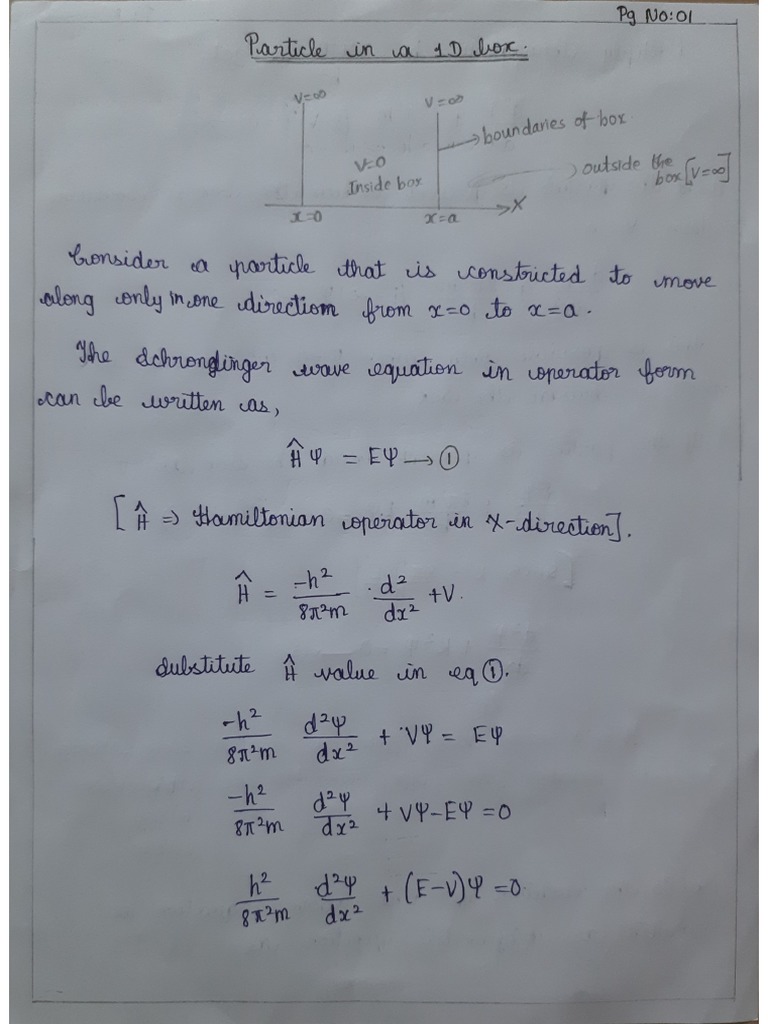 Pg No:01
Particle in a 1D box.
V=∞ V=∞
→boundaries of box
V=0
Inside box
outside the box [V=∞]
x=0 x=a X
Consider a particle that is constricted to move
along only in one direction from x=0 to x=a.
The Schrondinger wave equation in operator form
can be written as,
Ĥψ = Eψ → ①
[Ĥ => Hamiltonian operator in X-direction].
Ĥ = -h²/8π²m · d²/dx² + V.
substitute Ĥ value in eq ①.
-h²/8π²m d²ψ/dx² + Vψ = Eψ
-h²/8π²m d²ψ/dx² + Vψ-Eψ = 0
h²/8π²m d²ψ/dx² + (E-V)ψ = 0